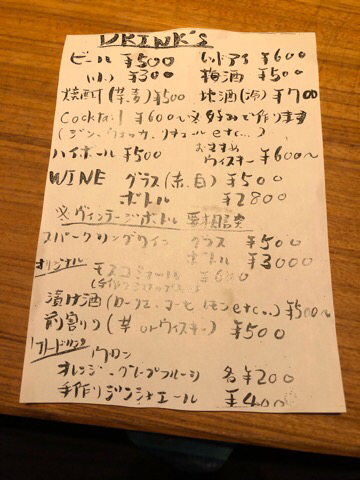 DRINK'S
ビール ¥500 レッドアイ ¥600
(小) ¥300 梅酒 ¥500
焼酎(芋・麦) ¥500 地酒(冷) ¥700
Cocktail ¥600〜 ※お好みで作ります
(ジン、ウォッカ、リキュール etc...)
ハイボール ¥500 おすすめウイスキー ¥600〜
WINE グラス(赤・白) ¥500
ボトル ¥2800
※ヴィンテージボトル 要相談
スパークリングワイン グラス ¥500
ボトル ¥3000
オリジナル モスコミュール ¥650
漬け酒(ローリエ、コーヒー、レモン etc...) ¥500〜
前割り(芋 or ウィスキー) ¥500
ソフトドリンク
ウーロン
オレンジ・グレープフルーツ 各¥200
手作りジンジャエール ¥400